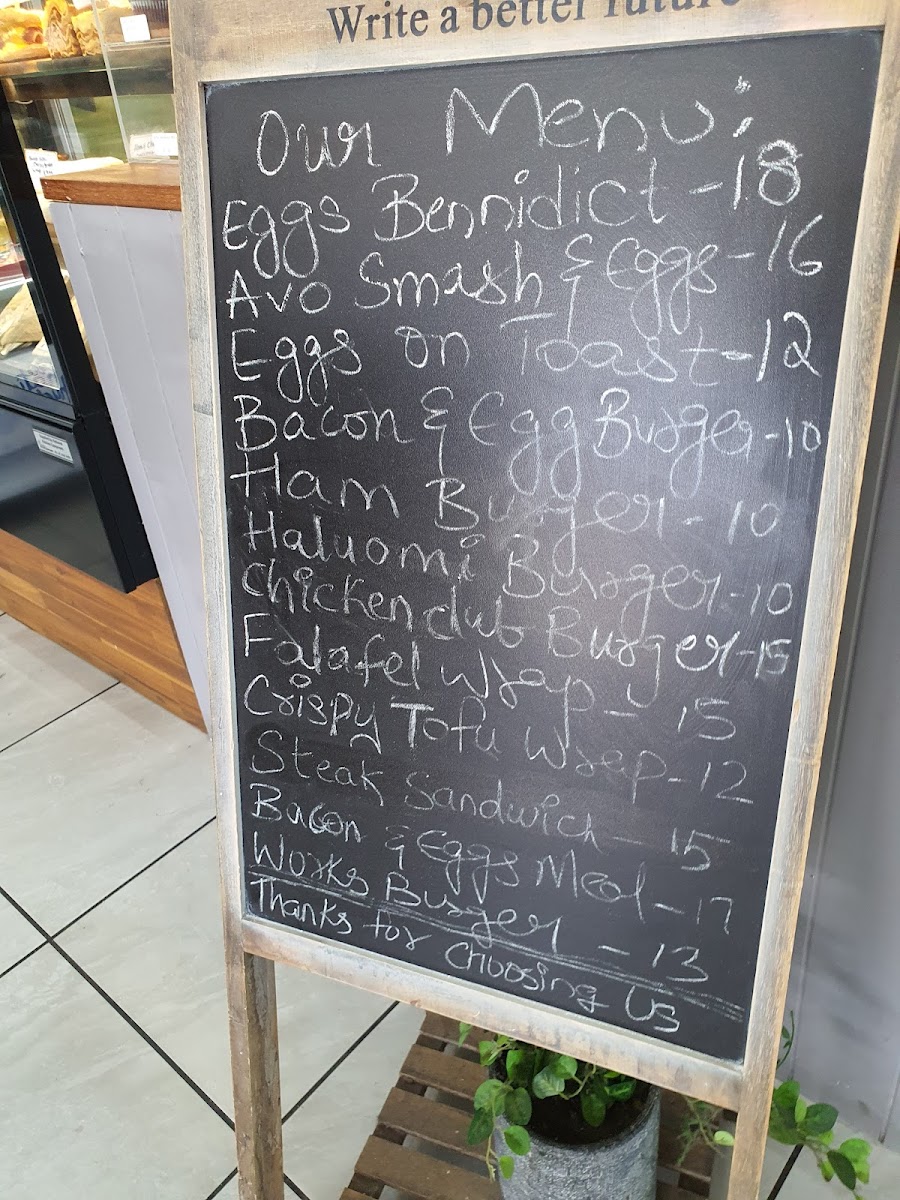 Write a better future
Our Menu:
Eggs Bennidict - 18
Avo Smash & Eggs - 16
Eggs on Toast - 12
Bacon & Egg Burger - 10
Ham Burger - 10
Haluomi Burger - 10
Chicken club Burger - 15
Falafel Wrap - 15
Crispy Tofu Wrap - 12
Steak Sandwich - 15
Bacon & Eggs Meal - 17
Works Burger - 13
Thanks for Choosing Us